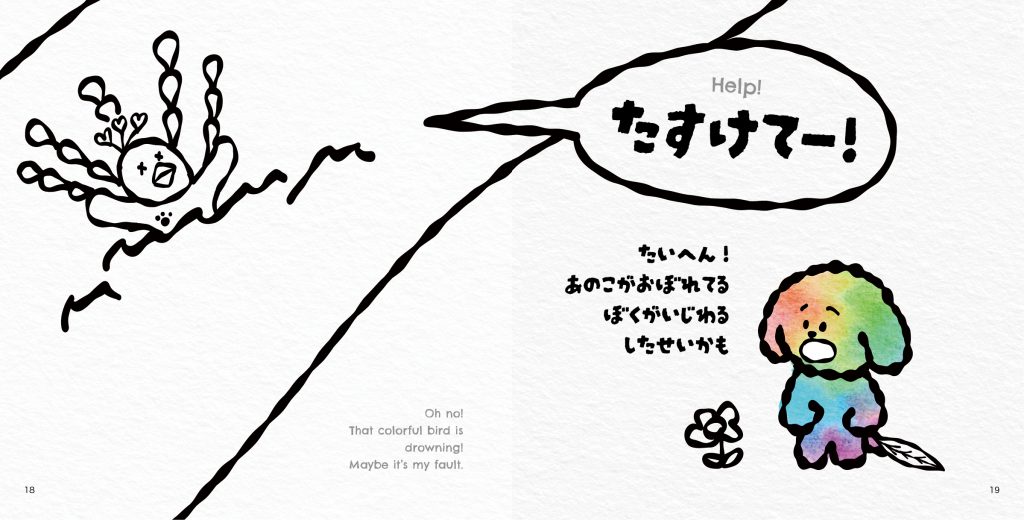 Help!
たすけてー!
たいへん！
あのこがおぼれてる
ぼくがいじわる
したせいかも
Oh no!
That colorful bird is
drowning!
Maybe it's my fault.
18
19